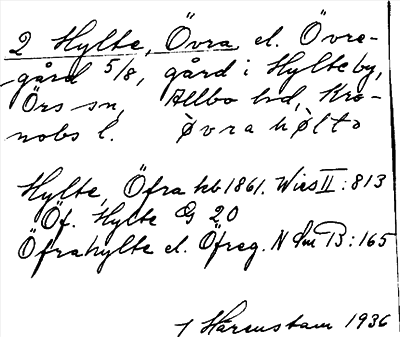 2 Hylte, Övra el. Övre-
gård 5/8, gård i Hylte by,
Örs sn, Allbo hd, Kro-
nobs l. òvrahòlto
Hylte, Öfra hb 1861. Wies II: 813
Öf. Hylte G 20
Öfrahylte el. Öfreg. N Sm B: 165
J Härenstam 1936